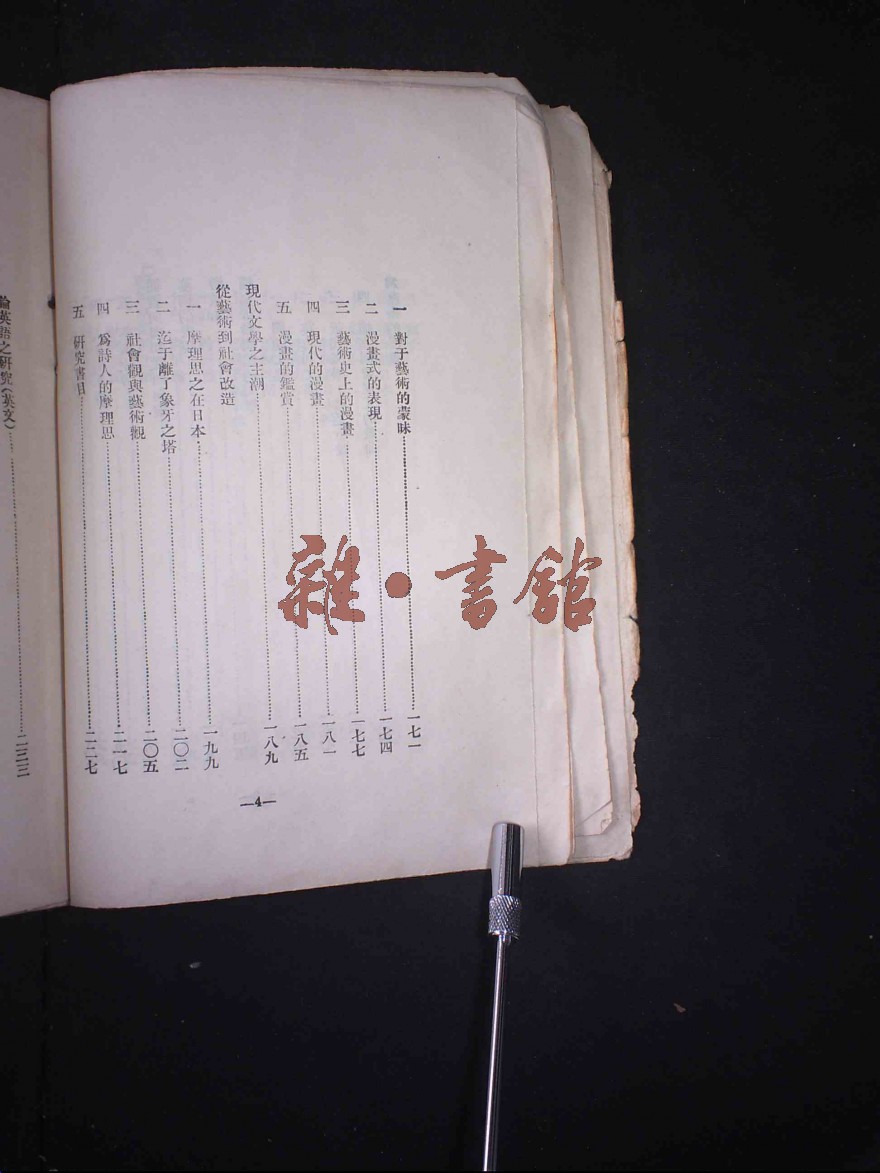 一　對于藝術的蒙昧……一七一
二　漫畫式的表現……一七四
三　藝術史上的漫畫……一七七
四　現代的漫畫……一八一
五　漫畫的鑑賞……一八五
現代文學之主潮……一八九
從藝術到社會改造
一　摩理思之在日本……一九九
二　迄于離了象牙之塔……二〇二
三　社會觀與藝術觀……二〇五
四　爲詩人的摩理思……二一七
五　研究書目……二二七
—4—
論英語之研究(英文)……二三三
雜·書館